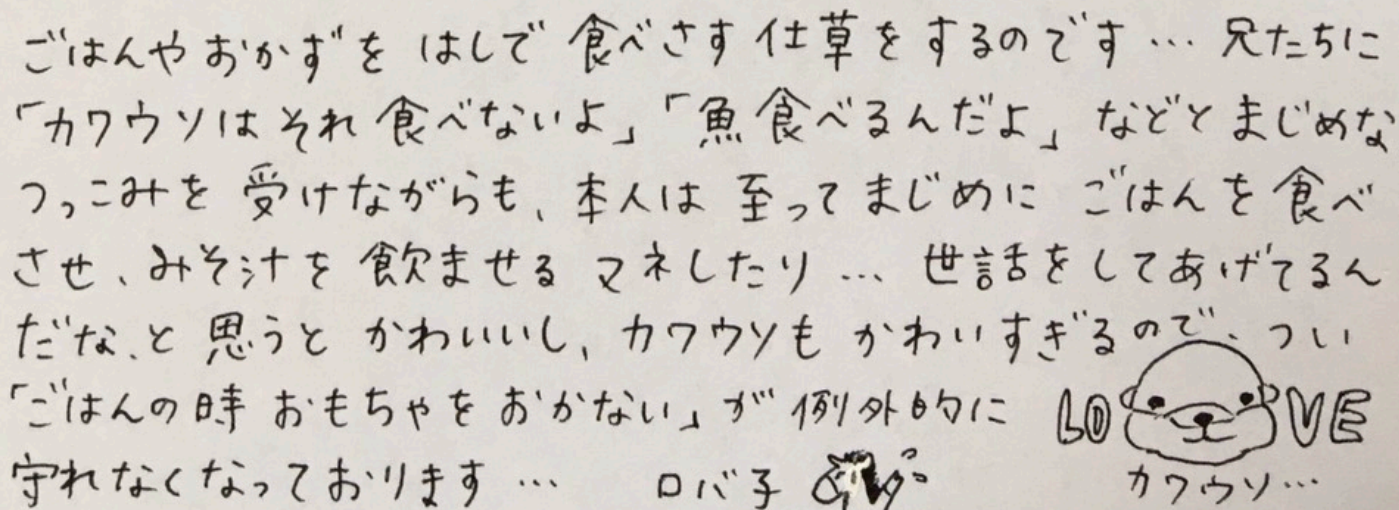 ごはんやおかずを はしで 食べさす 仕草を するのです… 兄たちに
「カワウソは それ 食べないよ」「魚食べるんだよ」 などと まじめな
つっこみを 受けながらも、本人は 至って まじめに ごはんを 食べ
させ、みそ汁を 飲ませる マネしたり… 世話をしてあげてるん
だな、と 思うと かわいいし、カワウソも かわいすぎるので、つい
「ごはんの時 おもちゃを おかない」が 例外的に
守れなくなっております…
ロバ子
LOVE
カワウソ…